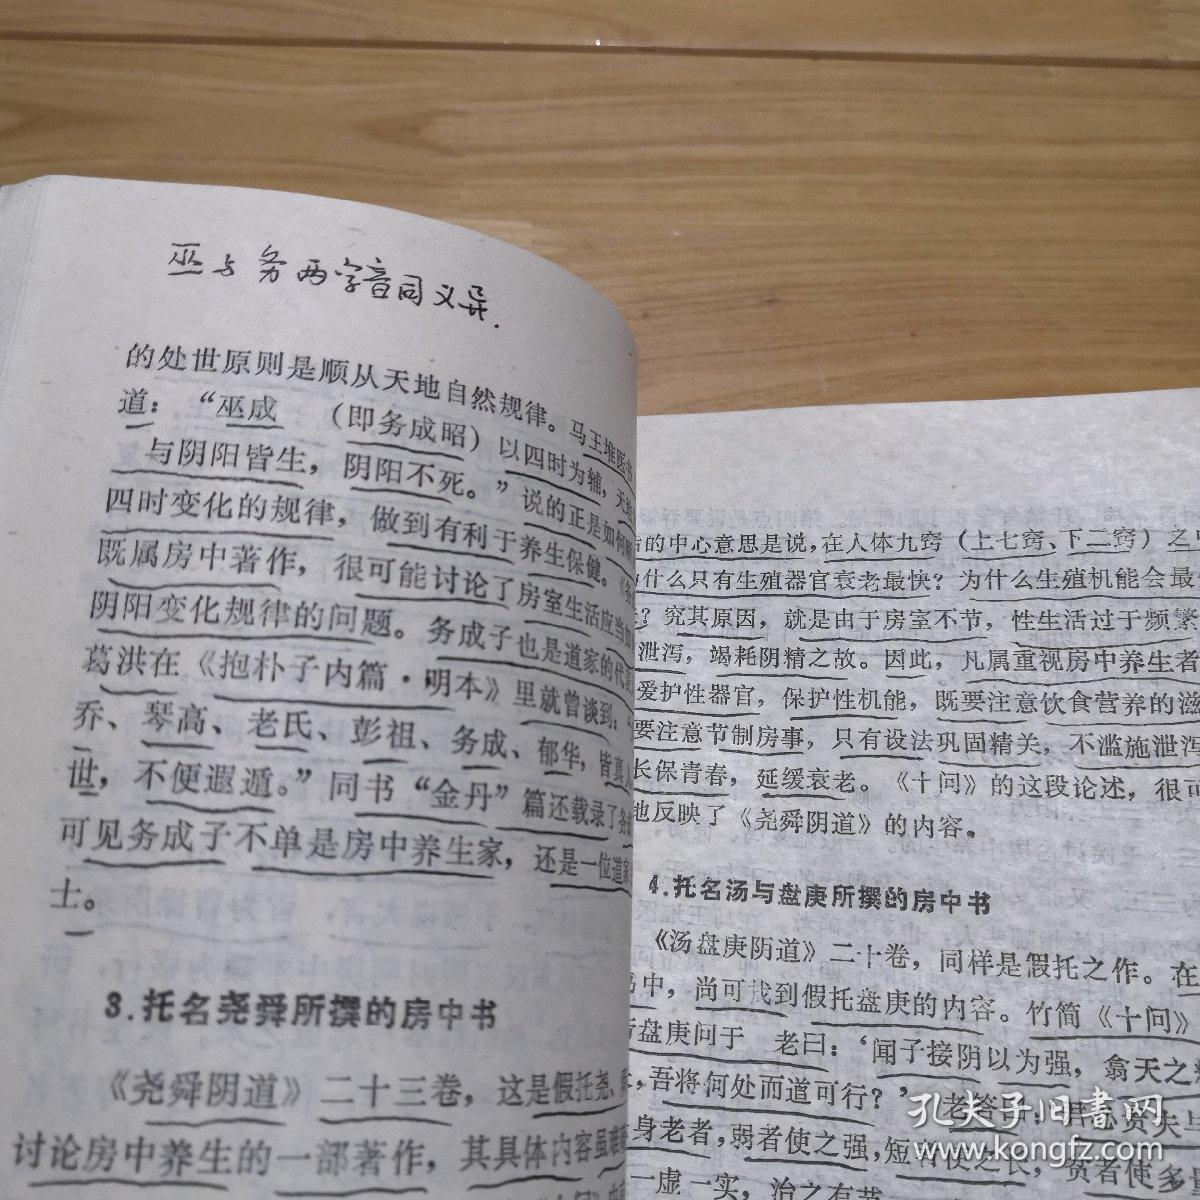 巫与务两字音同义异.
的处世原则是顺从天地自然规律。马王堆医
道：“巫成（即务成昭）以四时为辅，天
与阴阳皆生，阴阳不死。”说的正是如何
四时变化的规律，做到有利于养生保健。《
既属房中著作，很可能讨论了房室生活应当
阴阳变化规律的问题。务成子也是道家的代
葛洪在《抱朴子内篇·明本》里就曾谈到：
乔、琴高、老氏、彭祖、务成、郁华，皆真人
世，不便遐遁。”同书“金丹”篇还载录了务
可见务成子不单是房中养生家，还是一位道家
士。
3.托名尧舜所撰的房中书
《尧舜阴道》二十三卷，这是假托尧、
讨论房中养生的一部著作，其具体内容虽
的中心意思是说，在人体九窍（上七窍、下二窍）之
什么只有生殖器官衰老最快？为什么生殖机能会最
？究其原因，就是由于房室不节，性生活过于频繁
泄泻，竭耗阴精之故。因此，凡属重视房中养生者
爱护性器官，保护性机能，既要注意饮食营养的滋
要注意节制房事，只有设法巩固精关，不滥施泄泻
长保青春，延缓衰老。《十问》的这段论述，很可
地反映了《尧舜阴道》的内容。
4.托名汤与盘庚所撰的房中书
《汤盘庚阴道》二十卷，同样是假托之作。在
中，尚可找到假托盘庚的内容。竹简《十问》
盘庚问于 老曰：‘闻子接阴以为强，翕天之
，吾将何处而道可行？’ 老答曰：君必贵夫与
身老者，弱者使之强，短者使之长，贫者使多
一虚一实，治之有节
孔夫子旧书网
www.kongfz.com